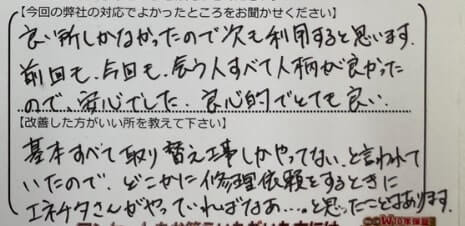 【今回の弊社の対応でよかったところをお聞かせください】
良い所しかなかったので次も利用すると思います.
前回も、今回も、会う人すべて人柄が良かった
ので、安心でした、良心的でとても良い.
【改善した方がいい所を教えて下さい】
基本すべて取り替え工事しかやってない、と言われて
いたので、どこかに修理依頼をするときに
エネチタさんがやっていればなあ…。と思ったことはあります.
W10年保証